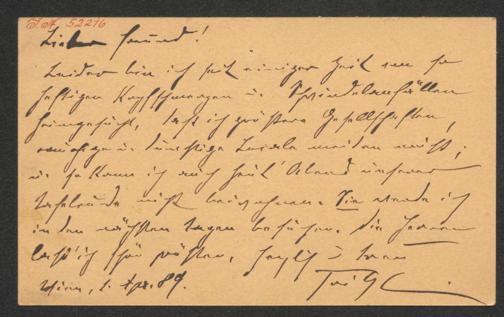 I.N. 52216
Lieber Freund!
Leider bin ich seit einiger Zeit von so
heftigen Kopfschmerzen u. Schwindelanfällen
heimgesucht, daß ich größere Gesellschaften,
rauchige u. dunstige Locale meiden muß;
u. so kann ich auch heut' Abend unserer
Tafelrunde nicht beiwohnen. Sie werde ich
in den nächsten Tagen besuchen. Die Herren
laß' ich schön grüßen. Herzlich u. treu
Wien, 2. Apr. 89.